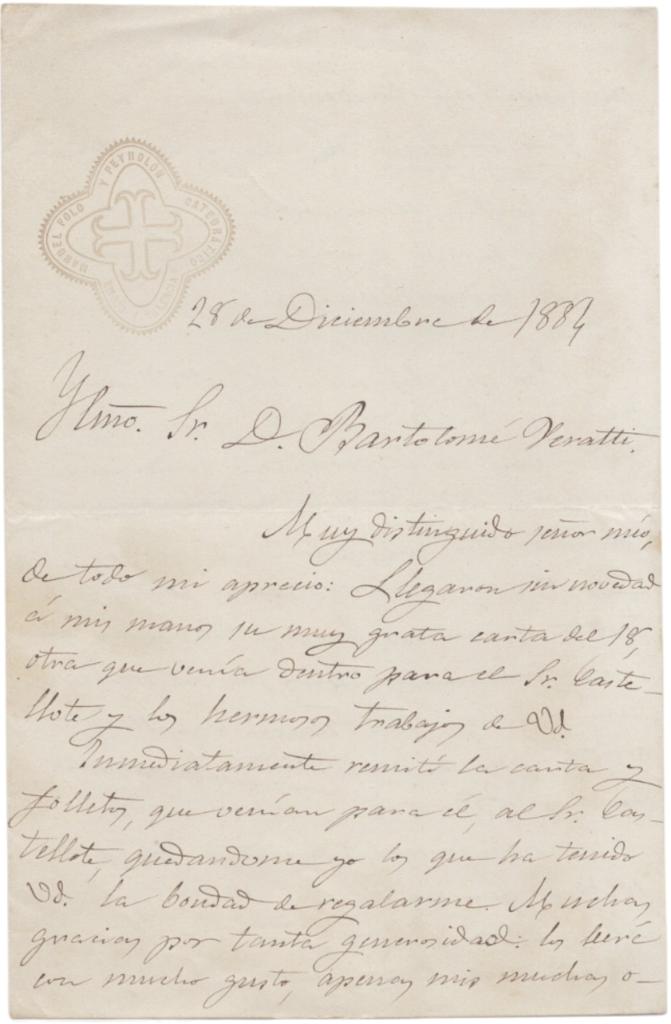 MANUEL POLO Y PEYROLON CATEDRÁTICO
28 de Diciembre de 1884
Yllmo. Sr. D. Bartolomé Veratti.
Muy distinguido señor mío,
de todo mi aprecio: Llegaron sin novedad
á mis manos su muy grata carta del 18,
otra que venía dentro para el Sr. Caste-
llote y los hermosos trabajos de Vd.
Inmediatamente remití la carta y
folletos, que venían para él, al Sr. Cas-
tellote, quedandome yo los que ha tenido
Vd. la bondad de regalarme. Muchas
gracias por tanta generosidad: los leeré
con mucho gusto, apenas mis muchas o-